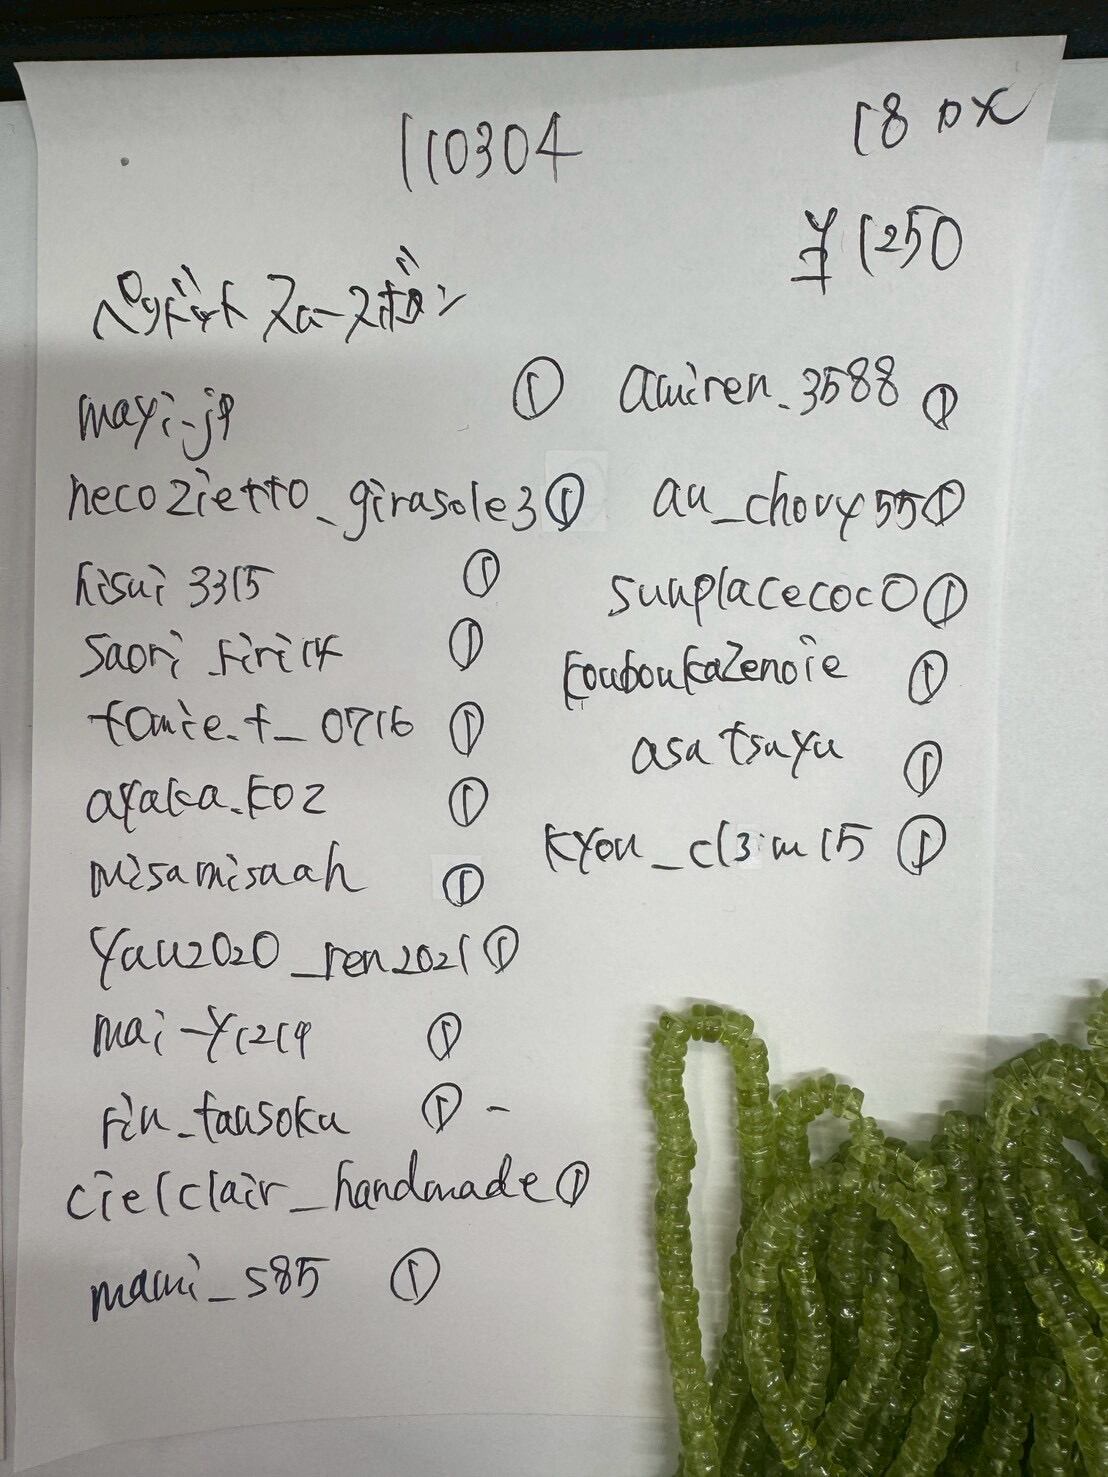 110304
18 ㅁX
¥1250
ペリドット スローズボタン
mayi-j9 ①
necozietto_girasole3 ①
hisui 3315 ①
saori_riri14 ①
tomie.t_0716 ①
ayaka.koz ①
misamisaah ①
yau2020_ren2021 ①
mai-y1219 ①
rin_tansoku ① -
cielclair_handmade ①
mami_s85 ①
amiren_3588 ①
au_chovy55 ①
sunplacecoco ①
kouboukazenoie ①
asatsuyu ①
kyou_cl3im15 ①